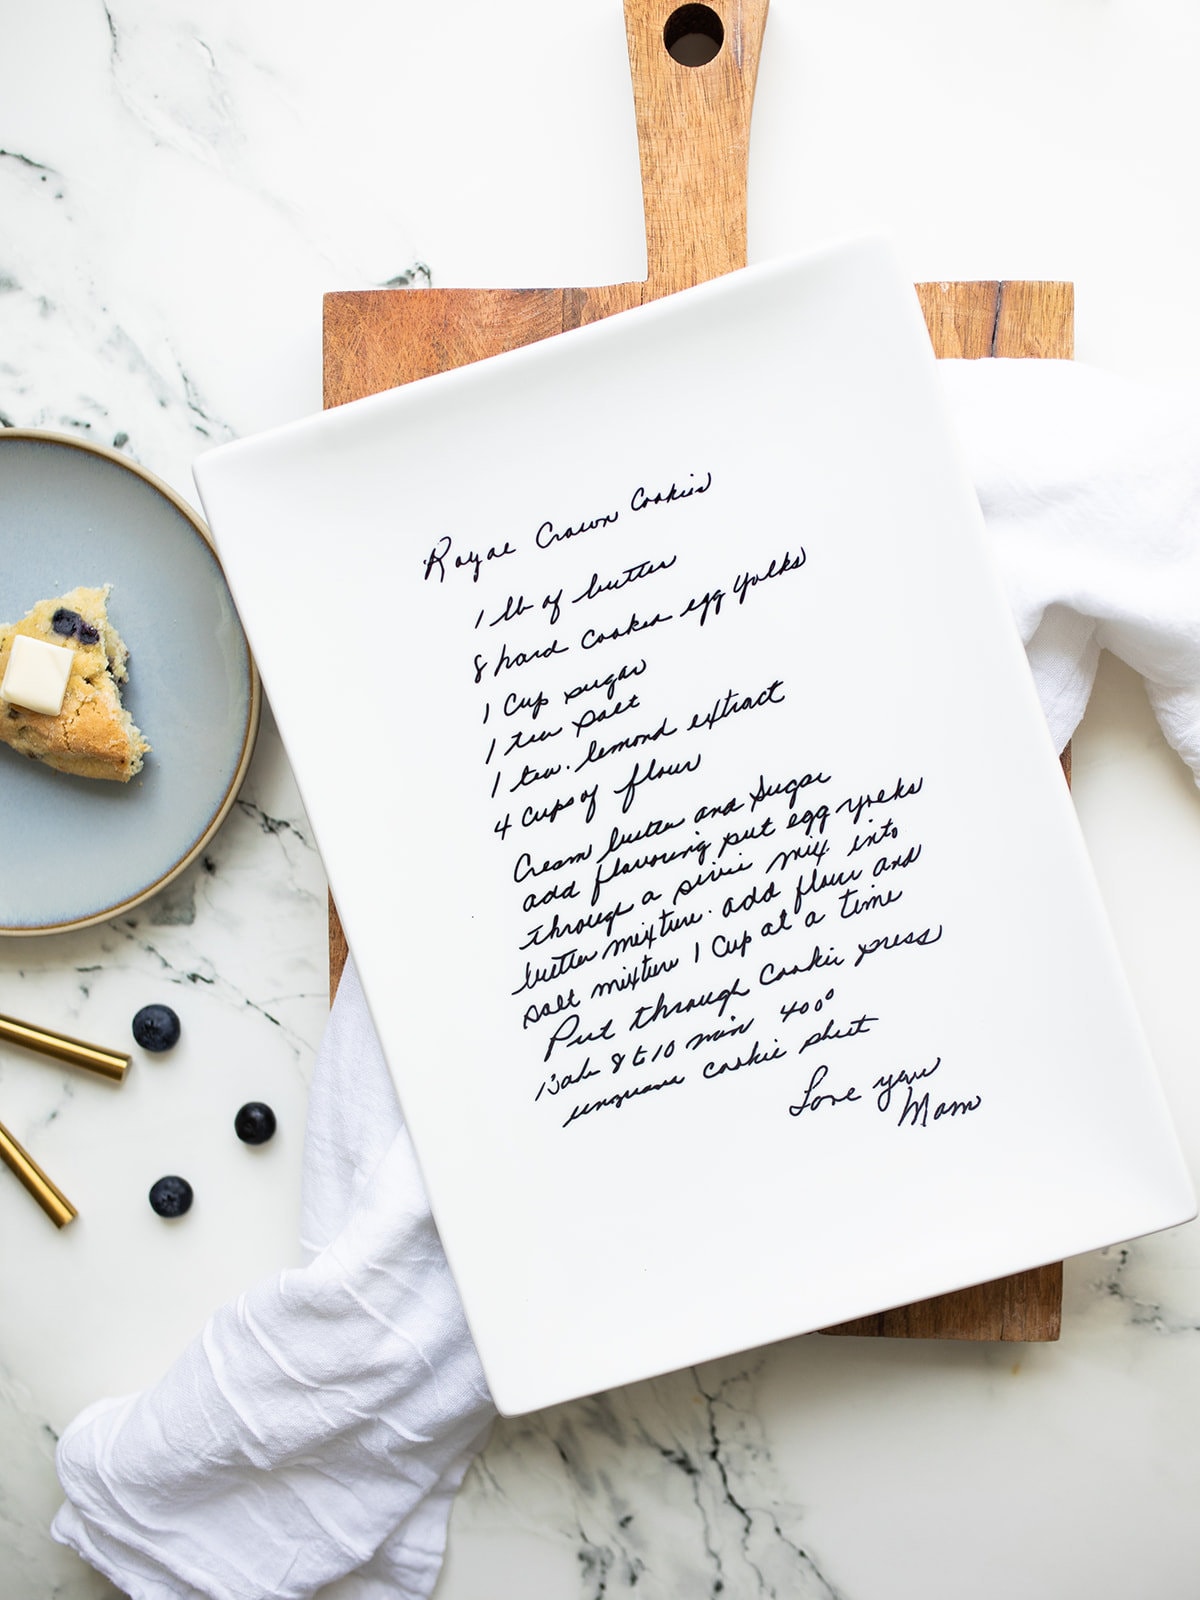 Royal Crown Cookies
1 lb of butter
8 hard cooked egg yolks
1 Cup sugar
1 tea salt
1 tea. lemond extract
4 Cups of flour
Cream butter and sugar
add flavoring put egg yolks
through a sivie mix into
butter mixture. add flour and
salt mixture 1 Cup at a time
Put through Cookie press
Bake 8 to 10 min 400°
ungrease cookie sheet
Love you
Mom